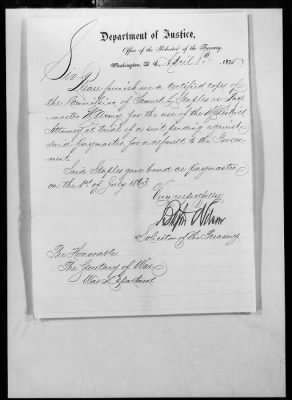 Department of Justice,
Office of the Solicitor of the Treasury,
Washington, D. C. April 1875
Sir,
Please furnish me a certified copy of
the Commission of Samuel L. Staples as Pay-
master U.S. Army for the use of the U.S. District
Attorney at trial of a suit pending against
said paymaster for a default to the Govern-
ment.
Said Staples gave bond as Paymaster
on the 1st of July 1863.
Very respectfully
Solicitor of the Treasury
The Honorable
The Secretary of War
War Department